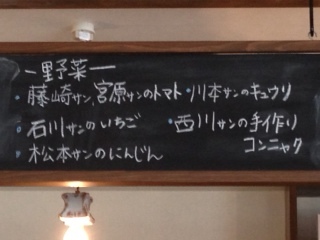 ー野菜ー
・藤崎サン、宮原サンのトマト・川本サンのキュウリ
・石川サンのいちご ・西川サンの手作り
コンニャク
・松本サンのにんじん